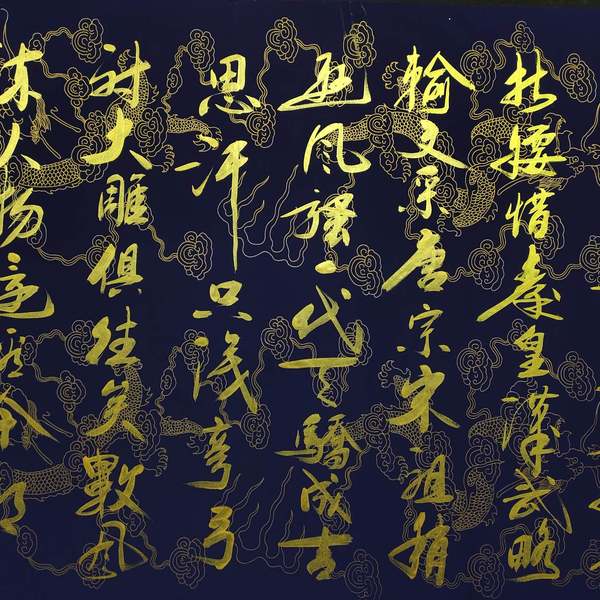 折腰惜秦皇漢武略
輸文采唐宗宋祖稍
遜風騷一代天驕成吉
思汗只識彎弓
射大雕俱往矣數風
流人物還看今朝